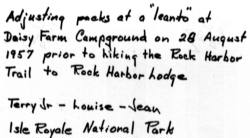 Adjusting packs at a "leanto" at
Daisy Farm Campground on 28 August
1957 prior to hiking the Rock Harbor
Trail to Rock Harbor Lodge
Terry Jr - Louise - Jean
Isle Royale National Park